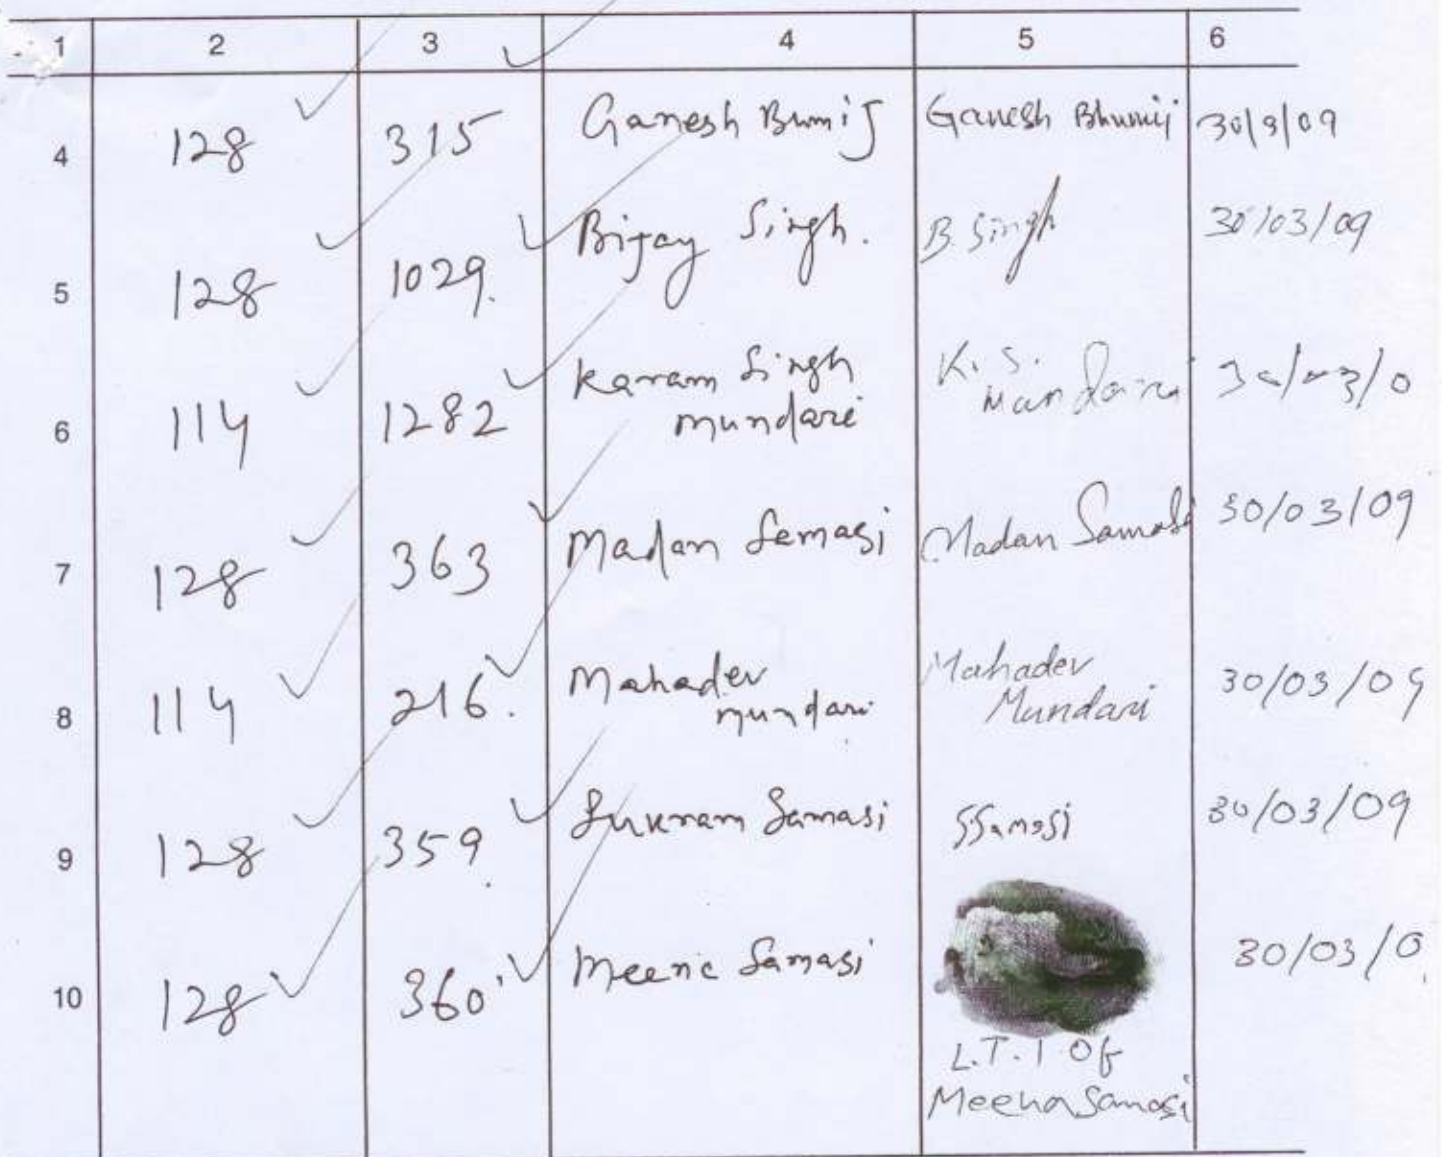 1 2 3 4 5 6
4 128 315 Ganesh Bumij Ganesh Bhumij 30/3/09
5 128 1029. Bijay Singh. B. Singh 30/03/09
6 114 1282 Karam Singh K. S. 30/03/0
mundari Mundari
7 128 363 Madan Samasi Madan Samasi 30/03/09
8 114 216. Mahadev Mahadev 30/03/09
mundari Mundari
9 128 359. Sukram Samasi SSamasi 30/03/09
10 128 360 Meena Samasi 30/03/0
L.T.I of
Meena Samasi